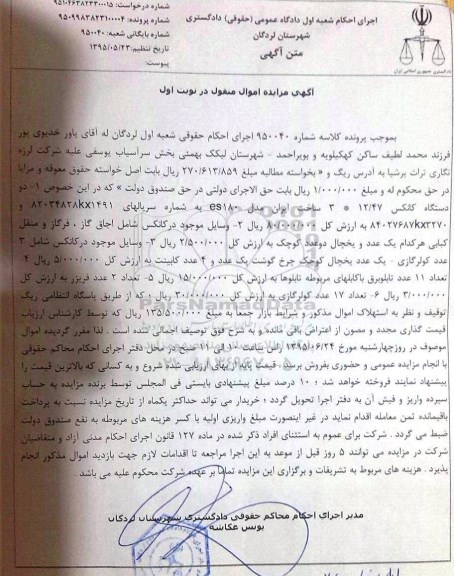 شماره درخواست: ۹۵۱۰۴۶۳۸۲۳۳۰۰۰۱۵
شماره پرونده: ۹۵۰۹۹۸۳۸۲۳۱۰۰۰۰۴
شماره بایگانی شعبه: ۹۵۰۰۴۰
تاریخ تنظیم: ۱۳۹۵/۰۵/۲۳
پیوست:
اجرای احکام شعبه اول دادگاه عمومی (حقوقی) دادگستری
شهرستان لردگان
متن آگهی
آگهی مزایده اموال منقول در نوبت اول
بموجب پرونده کلاسه شماره ۹۵۰۰۴۰ اجرای احکام حقوقی شعبه اول لردگان له آقای یاور خدیوی پور
فرزند محمد لطیف ساکن کهکیلویه و بویراحمد - شهرستان لیکک بهمئی بخش سرآسیاب یوسفی علیه شرکت لرزه
نگاری ترات برشیا به آدرس ریگ و « بخواسته مطالبه مبلغ ۲۷۰/۶۱۳/۸۵۹ ریال بابت اصل خواسته حقوق معوقه و مزایا
در حق محکوم له و مبلغ ۱/۰۰۰/۰۰۰ ریال بابت حق الاجرای دولتی در حق صندوق دولت » که در این خصوص ۱- دو
دستگاه کانکس ۱۲/۴۷ * ۳ ساخت ایران مدل es۱۸۰ به شماره سریالهای ۸۲۰۳۴۸۲۸kx۱۴۹۱ و
۸۴۰۲۷۶۸۷kx۳۲۷۰ به ارزش کل ۸۰/۰۰۰/۰۰۰ ریال ۲- وسایل موجود درکانکس شامل اجاق گاز ، فرگاز و منقل
کبابی هرکدام یک عدد و یخچال دوعدد کوچک به ارزش کل ۲/۵۰۰/۰۰۰ ریال ۳- وسایل موجود درکانکس شامل ۳
عدد کولرگازی - یک عدد یخچال کوچک چرخ گوشت یک عدد و ۴ عدد کابینت به ارزش کل ۵/۰۰۰/۰۰۰ ریال ۴-
تعداد ۱۱ عدد تابلوبرق باکابلهای مربوطه تابلوها به ارزش کل ۱۵/۰۰۰/۰۰۰ ریال ۵- تعداد ۲ عدد فریزر به ارزش کل
۳/۰۰۰/۰۰۰ ریال ۶- تعداد ۱۷ عدد کولرگازی به ارزش کل ۳۰/۰۰۰/۰۰۰ ریال ؛ که از طریق پاسگاه انتظامی ریگ
توقیف و نظر به استهلاک اموال مذکور و شرایط بازار جمعا به مبلغ ۱۳۵/۵۰۰/۰۰۰ ریال که توسط کارشناس ارزیاب
قیمت گذاری مجدد و مصون از اعتراض باقی مانده و به شرح فوق توصیف اجمالی شده است . لذا مقرر گردیده اموال
موصوف در روزچهارشنبه مورخ ۱۳۹۵/۰۶/۲۴ راس ساعت ۱۰ الی ۱۱ صبح در محل دفتر اجرای احکام محاکم حقوقی
با انجام مزایده عمومی و حضوری بفروش برسد . قیمت پایه از بهای ارزیابی شده شروع و به کسانی که بالاترین قیمت را
پیشنهاد نمایند فروخته خواهد شد ؛ ۱۰ درصد مبلغ پیشنهادی بایستی فی المجلس توسط برنده مزایده به حساب
سپرده واریز و فیش آن به دفتر اجرا تحویل گردد ؛ خریدار می تواند حداکثر یکماه از تاریخ مزایده نسبت به پرداخت
باقیمانده ثمن معامله اقدام نماید در غیر اینصورت مبلغ واریزی اولیه با کسر هزینه های مربوطه به نفع صندوق دولت
ضبط می گردد . شرکت برای عموم به استثنای افراد ذکر شده در ماده ۱۲۷ قانون اجرای احکام مدنی آزاد و متقاضیان
شرکت در مزایده می توانند ۵ روز قبل از موعد به این اجرا مراجعه تا اقدامات لازم جهت بازدید اموال مذکور انجام
پذیرد . هزینه های مربوط به تشریفات و برگزاری این مزایده تماما بر عهده شرکت محکوم علیه می باشد .
مدیر اجرای احکام محاکم حقوقی دادگستری شهرستان لردگان
یونس عکاشه